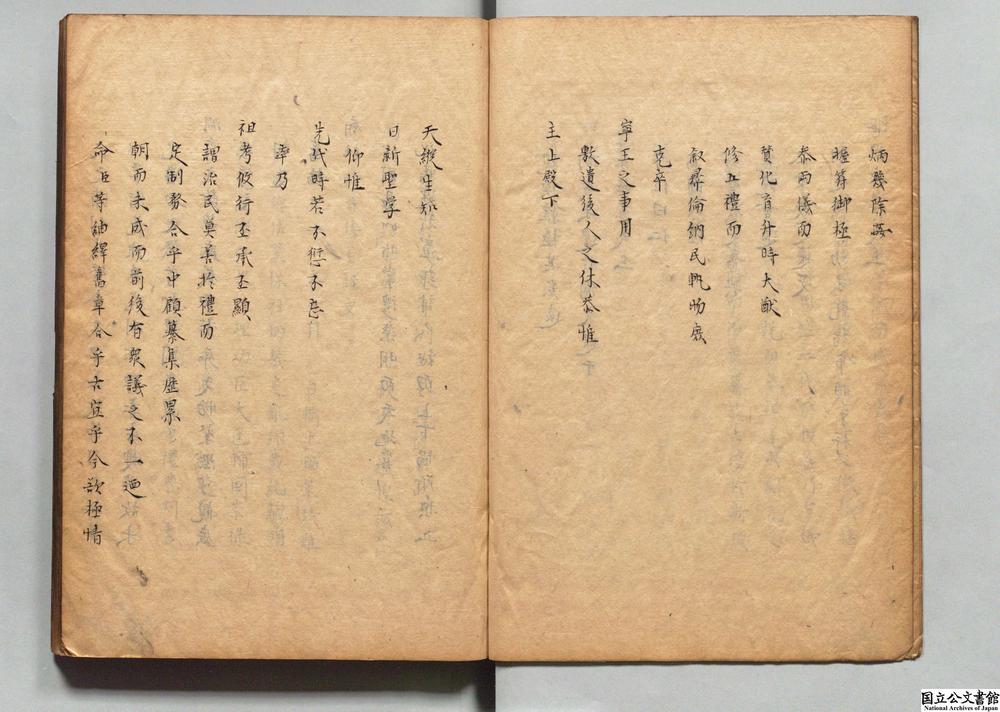 炳幾除
握筭御極
泰兩儀而
賛化育升時大猷
修五禮而
叙彛倫納民軌物庶
克卒
寧王之事用
敷遺後人之休恭惟
主上殿下
天縱生知
日新聖學
仰惟
先代時若不愆不忘
率乃
祖考攸行丕承丕顯
謂治民莫善於禮而
定制務合乎中顧纂集歷累
朝而未成而前後有衆議之不一迺
命臣等紬繹舊章合乎古宜乎今欲極情
国立公文書館
National Archives of Japan